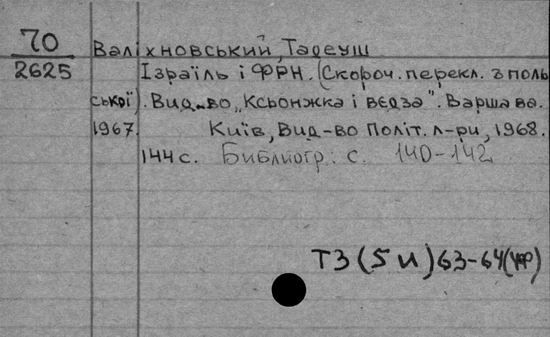 70 Валіхновський, Тадеуш
2625 Ізраїль і ФРН. (Скороч. перекл. з поль
ської). Вид-во „Ксьонжка і вєдза". Варшава.
1967. Київ, Вид-во Політ. л-ри, 1968.
144 с. Библиогр.: с. 140-142
ТЗ (5 И) 63-64 (ФР)